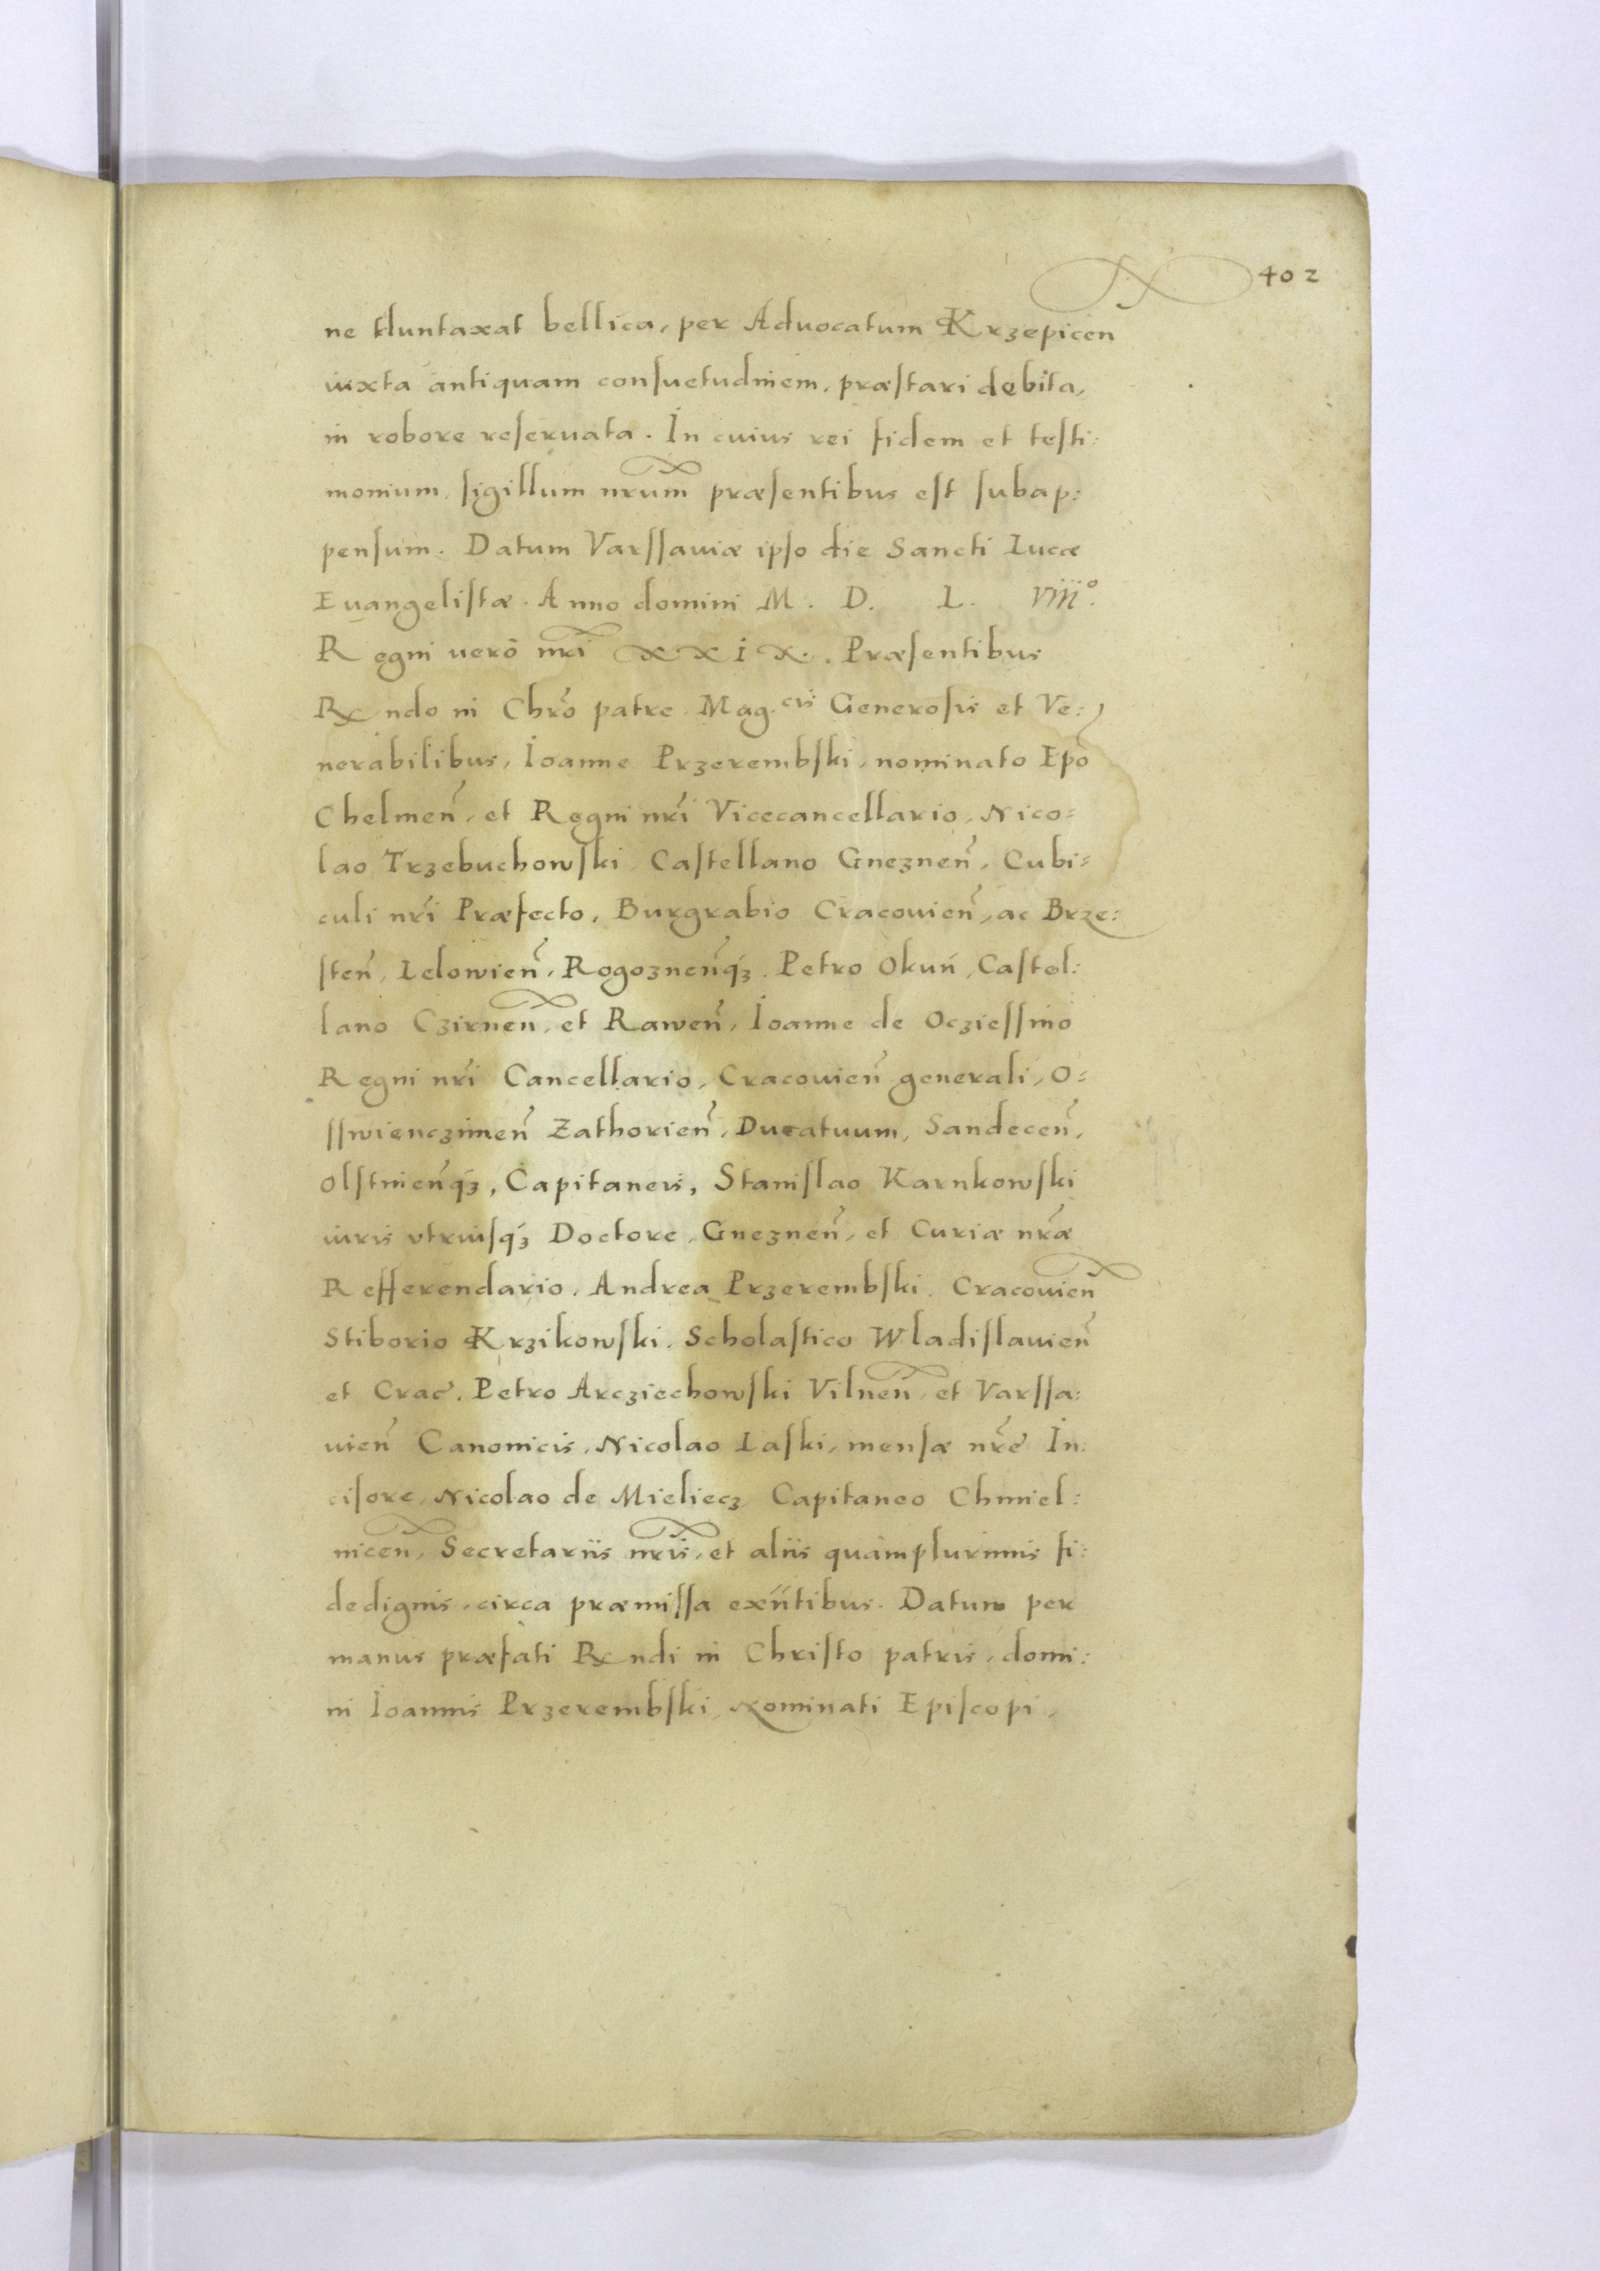 402
ne duntaxat bellica, per Aduocatum Krzepicen̄
iuxta antiquam consuetudinem, præstari debita,
in robore reseruata. In cuius rei fidem et testi:
monium, sigillum nrum̄ præsentibus est subap:
pensum. Datum Varssauiæ ipso die Sancti Lucæ
Euangelistæ. Anno domini M. D. L. viii°.
Regni uerò nrī XXIX. Præsentibus
Rndo in Chrō patre Mag.cis Generosis et Ve:
nerabilibus, Ioanne Przerembski, nominato Epō
Chelmen̄, et Regni nrī Vicecancellario, Nico:
lao Trzebuchowski Castellano Gneznen̄, Cubi:
culi nrī Præfecto, Burgrabio Cracouien̄, ac Brze:
sten̄, Lelowien̄, Rogoznen̄q́ꝫ. Petro Okuń, Castel:
lano Czirnen̄, et Rawen̄, Ioanne de Ocziessino
Regni nrī Cancellario, Cracouien̄ generali, O:
sswienczimen̄ Zathorien̄, Ducatuum, Sandecen̄,
Olstinien̄q́ꝫ, Capitaneis, Stanislao Karnkowski
iuris vtriusq́ꝫ Doctore, Gneznen̄, et Curiæ nrǣ
Refferendario, Andrea Przerembski, Cracouien̄
Stiborio Krzikowski, Scholastico Wladislauien̄
et Crac̄. Petro Arcziechowski Vilnen̄, et Varssa:
uien̄ Canonicis, Nicolao Laski, mensæ nrē In:
cisore, Nicolao de Mieliecz Capitaneo Chmiel:
nicen̄, Secretariis nrīs, et aliis quàmplurimis fi:
dedignis, circa præmissa exn̄tibus. Datum per
manus præfati Rndi in Christo patris, domi:
ni Ioannis Przerembski, Nominati Episcopi,